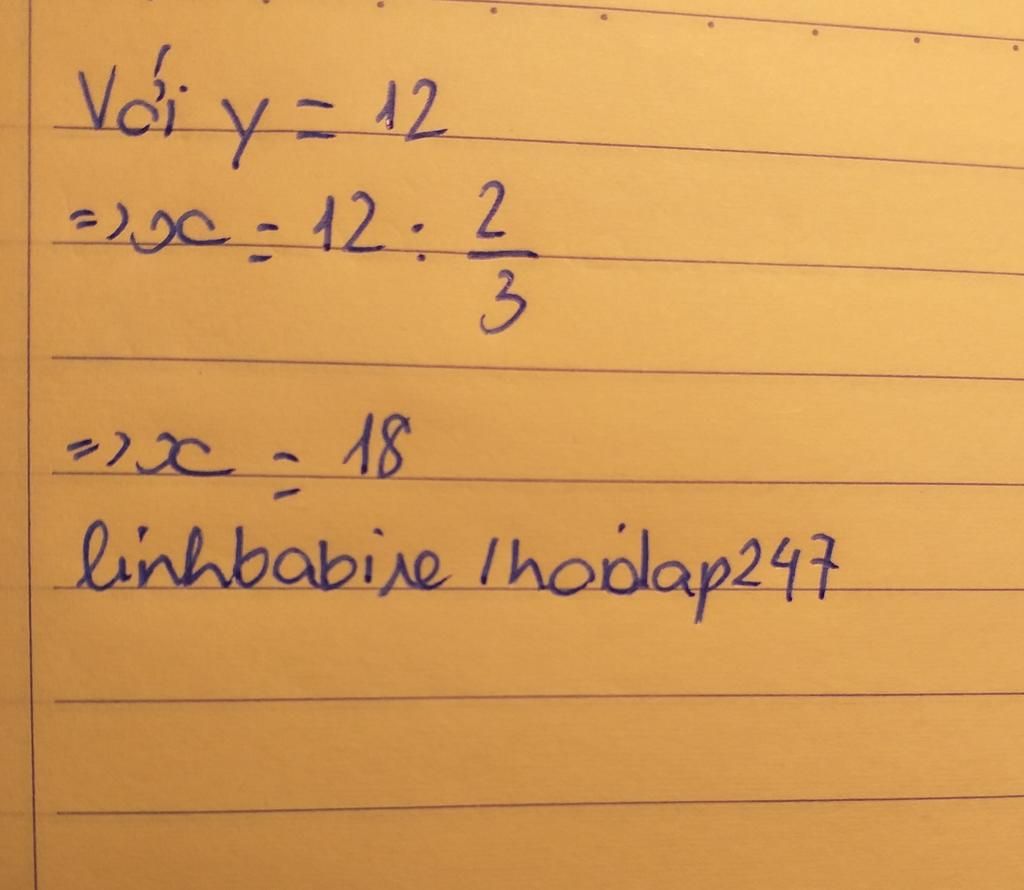 Với y = 12
=> x = 12 : 2/3
=> x = 18
linhbabie /hoidap247